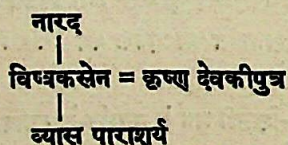 नारद
विष्वकसेन = कृष्ण देवकीपुत्र
व्यास पाराशर्य